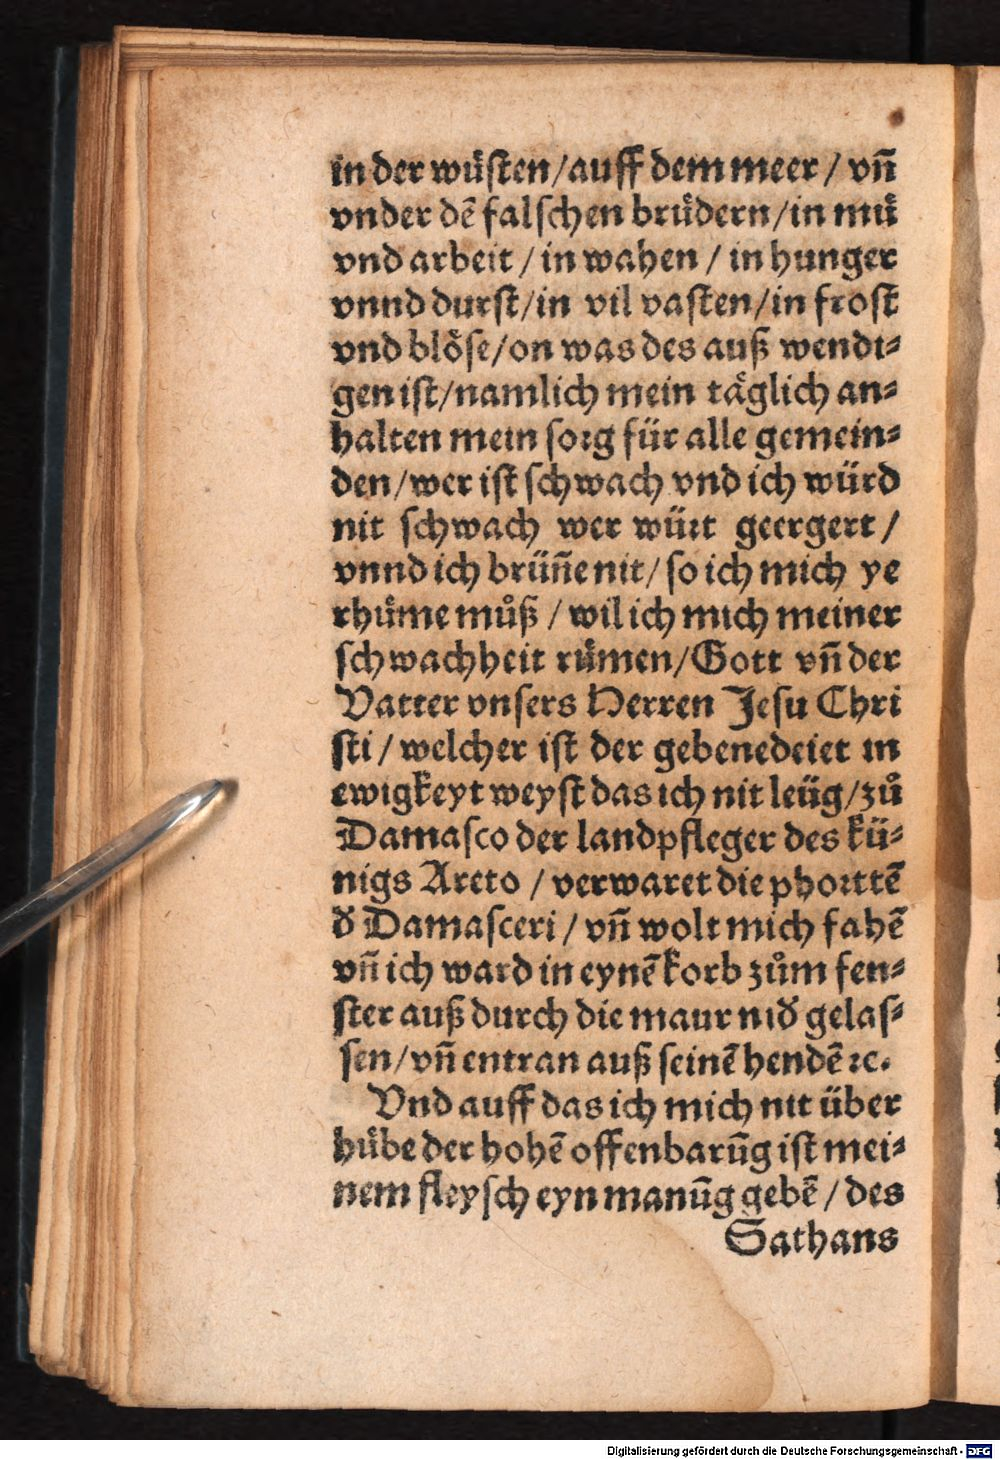 in der wuͤsten / auff dem meer / vñ
vnder dẽ falschen bruͤdern / in muͤ
vnd arbeit / in wahen / in hunger
vnnd durst / in vil vasten / in frost
vnd bloͤse / on was des auß wendi⸗
gen ist / namlich mein taͤglich an⸗
halten mein sorg für alle gemein⸗
den / wer ist schwach vnd ich würd
nit schwach wer würt geergert /
vnnd ich brüñe nit / so ich mich ye
rhuͤme muͦß / wil ich mich meiner
schwachheit ruͤmen / Gott vñ der
Vatter vnsers Herren Jesu Chri
sti / welcher ist der gebenedeiet in
ewigkeyt weyst das ich nit leüg / zuͦ
Damasco der landpfleger des kü⸗
nigs Areto / verwaret die phorttẽ
ď Damasceri / vñ wolt mich fahẽ
vñ ich ward in eynẽ korb zuͦm fen⸗
ster auß durch die maur niď gelas⸗
sen / vñ entran auß seinẽ hendẽ ꝛc.
Vnd auff das ich mich nit über
huͤbe der hohẽ offenbarũg ist mei⸗
nem fleysch eyn manũg gebẽ / des
Sathans
Digitalisierung gefördert durch die Deutsche Forschungsgemeinschaft - DFG